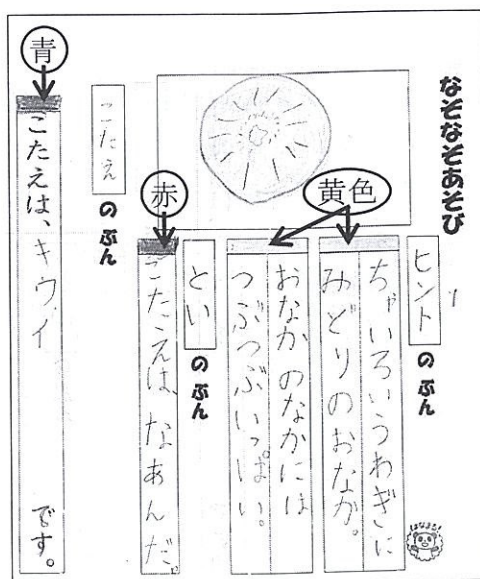 なぞなぞあそび
ヒントのぶん
ちゃいろいうわぎに
みどりのおなか。
おなかのなかには
つぶつぶいっぱい。
黄色
といのぶん
こたえは、なあんだ。
赤
こたえのぶん
こたえは、キウイです。
青
はなまる